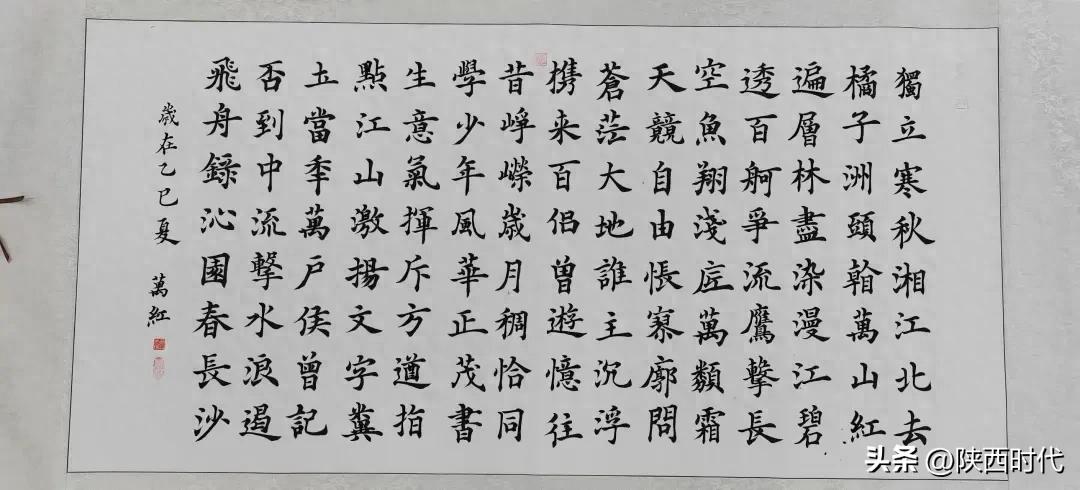 獨立寒秋湘江北去
橘子洲頭翰萬山紅
遍層林盡染漫江碧
透百舸爭流鷹擊長
空魚翔淺底萬類霜
天競自由悵寥廓問
蒼茫大地誰主沉浮
携来百侣曾遊憶往
昔崢嶸歲月稠恰同
學少年風華正茂書
生意氣揮斥方遒指
點江山激揚文字糞
土當年萬戶侯曾記
否到中流擊水浪遏
飛舟錄沁園春長沙
歲在乙巳夏 萬紅
头条 @陕西时代